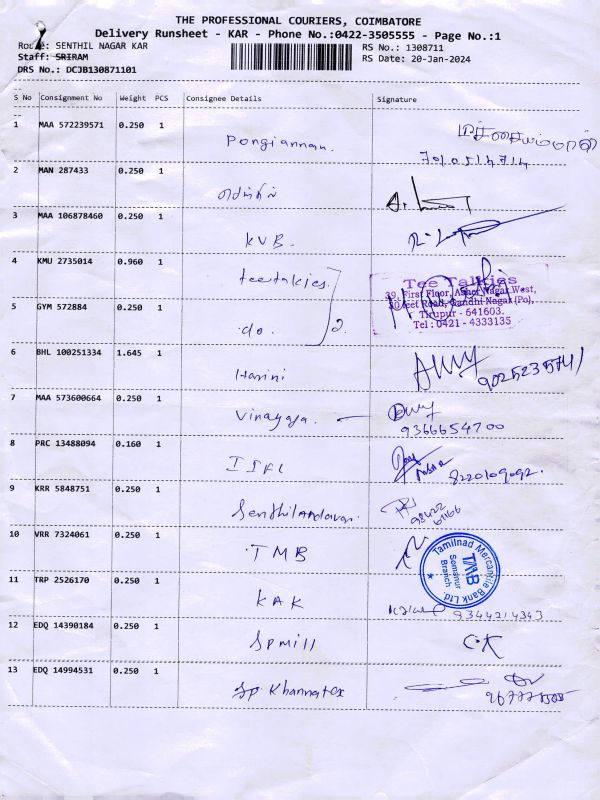 THE PROFESSIONAL COURIERS, COIMBATORE
Delivery Runsheet - KAR - Phone No.:0422-3505555 - Page No.:1
Route: SENTHIL NAGAR KAR
RS No.: 1308711
Staff: SRIRAM
RS Date: 20-Jan-2024
DRS No.: DCJB130871101
S No Consignment No Weight PCS Consignee Details Signature
1 MAA 572239571 0.250 1 Pongiannan.
2 MAN 287433 0.250 1
3 MAA 106878460 0.250 1 KVB.
4 KMU 2735014 0.960 1 teetalkies.
Tee Talkies
39, First Floor, Ashok Nagar West,
60 feet Road, Gandhi Nagar (Po),
Tirupur - 641603.
Tel : 0421 - 4333135
5 GYM 572884 0.250 1 do. 2.
6 BHL 100251334 1.645 1 Harini
7 MAA 573600664 0.250 1 Vinayaga. 9366654700
8 PRC 13488094 0.160 1 ISFL 8220109092.
9 KRR 5848751 0.250 1 Senthilandavar. 98422
61166
10 VRR 7324061 0.250 1 TMB
Tamilnad Mercantile Bank Ltd.
TMB
Somanur
Branch
11 TRP 2526170 0.250 1 KAK 9344214343
12 EDQ 14390184 0.250 1 Sp mill C.K
13 EDQ 14994531 0.250 1 Sp Khannatex